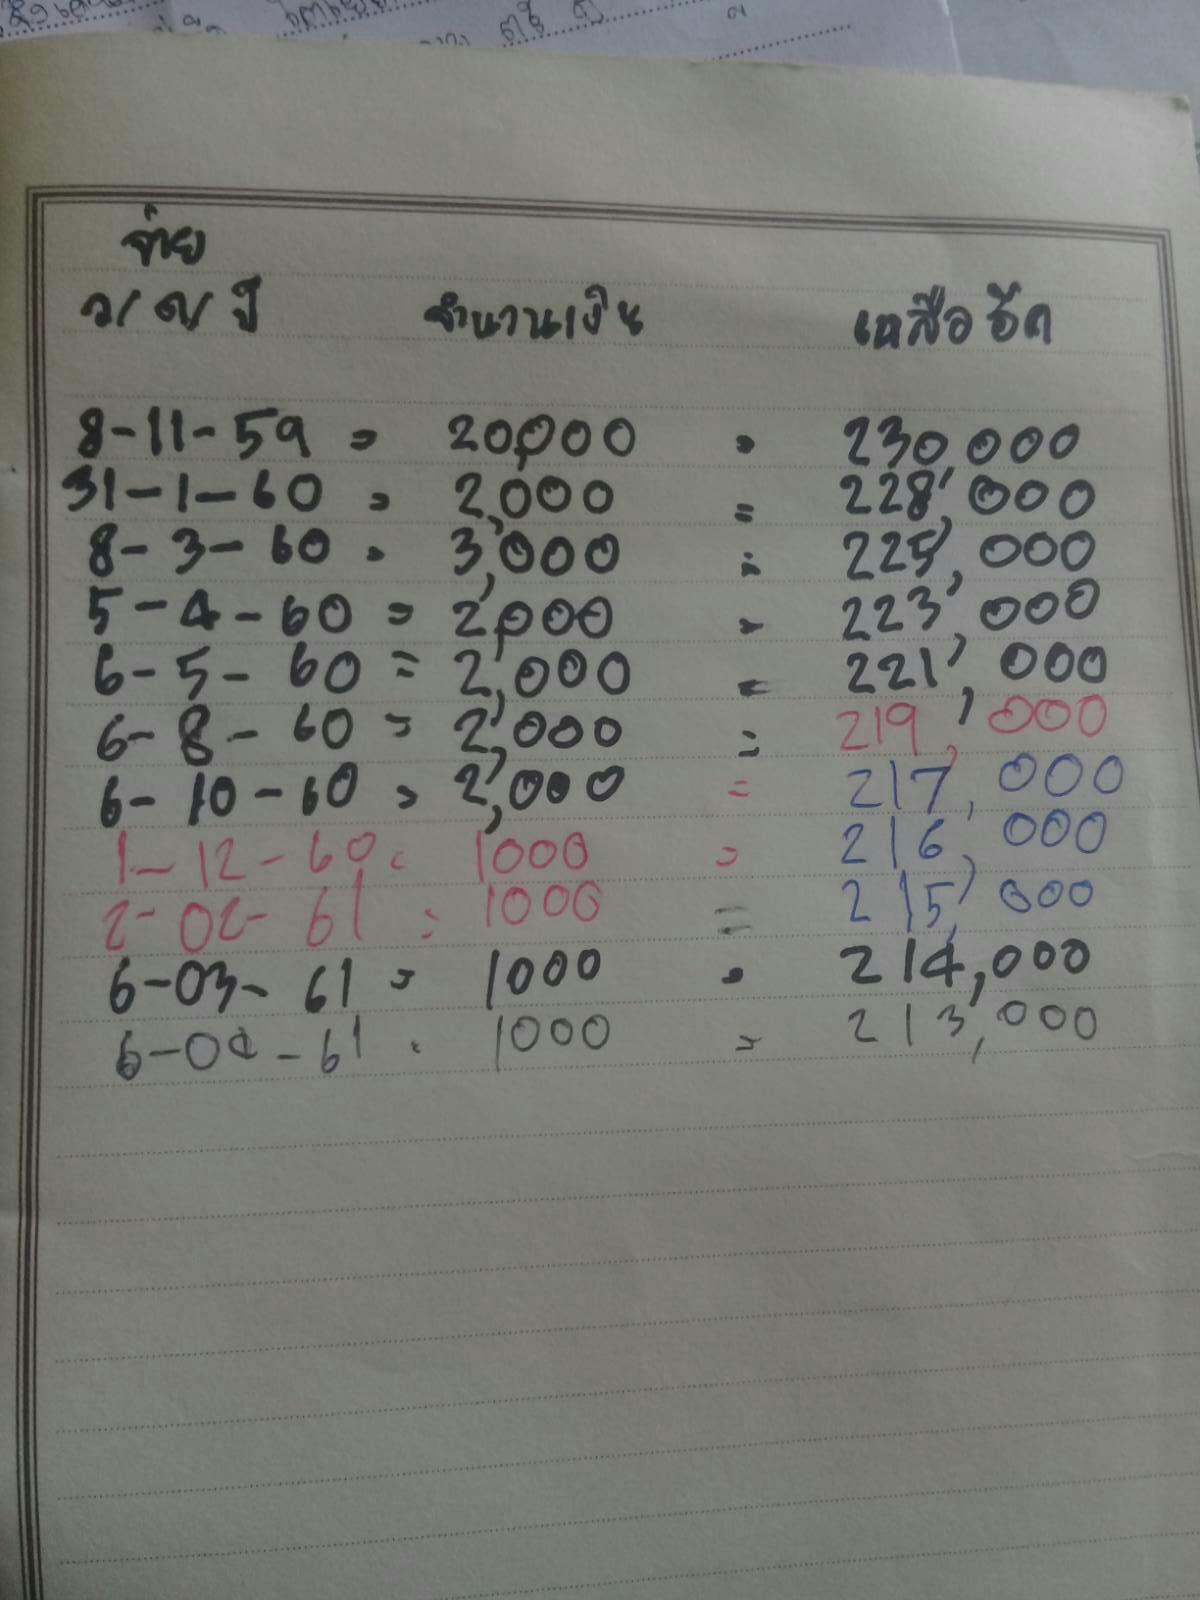 จ่าย
ว/ด/ปี จำนวนเงิน เหลืออีก
8-11-59 = 20,000 = 230,000
31-1-60 = 2,000 = 228,000
8-3-60 = 3,000 = 225,000
5-4-60 = 2,000 = 223,000
6-5-60 = 2,000 = 221,000
6-8-60 = 2,000 = 219,000
6-10-60 = 2,000 = 217,000
1-12-60 = 1000 = 216,000
2-02-61 = 1000 = 215,000
6-03-61 = 1000 = 214,000
6-04-61 = 1000 = 213,000